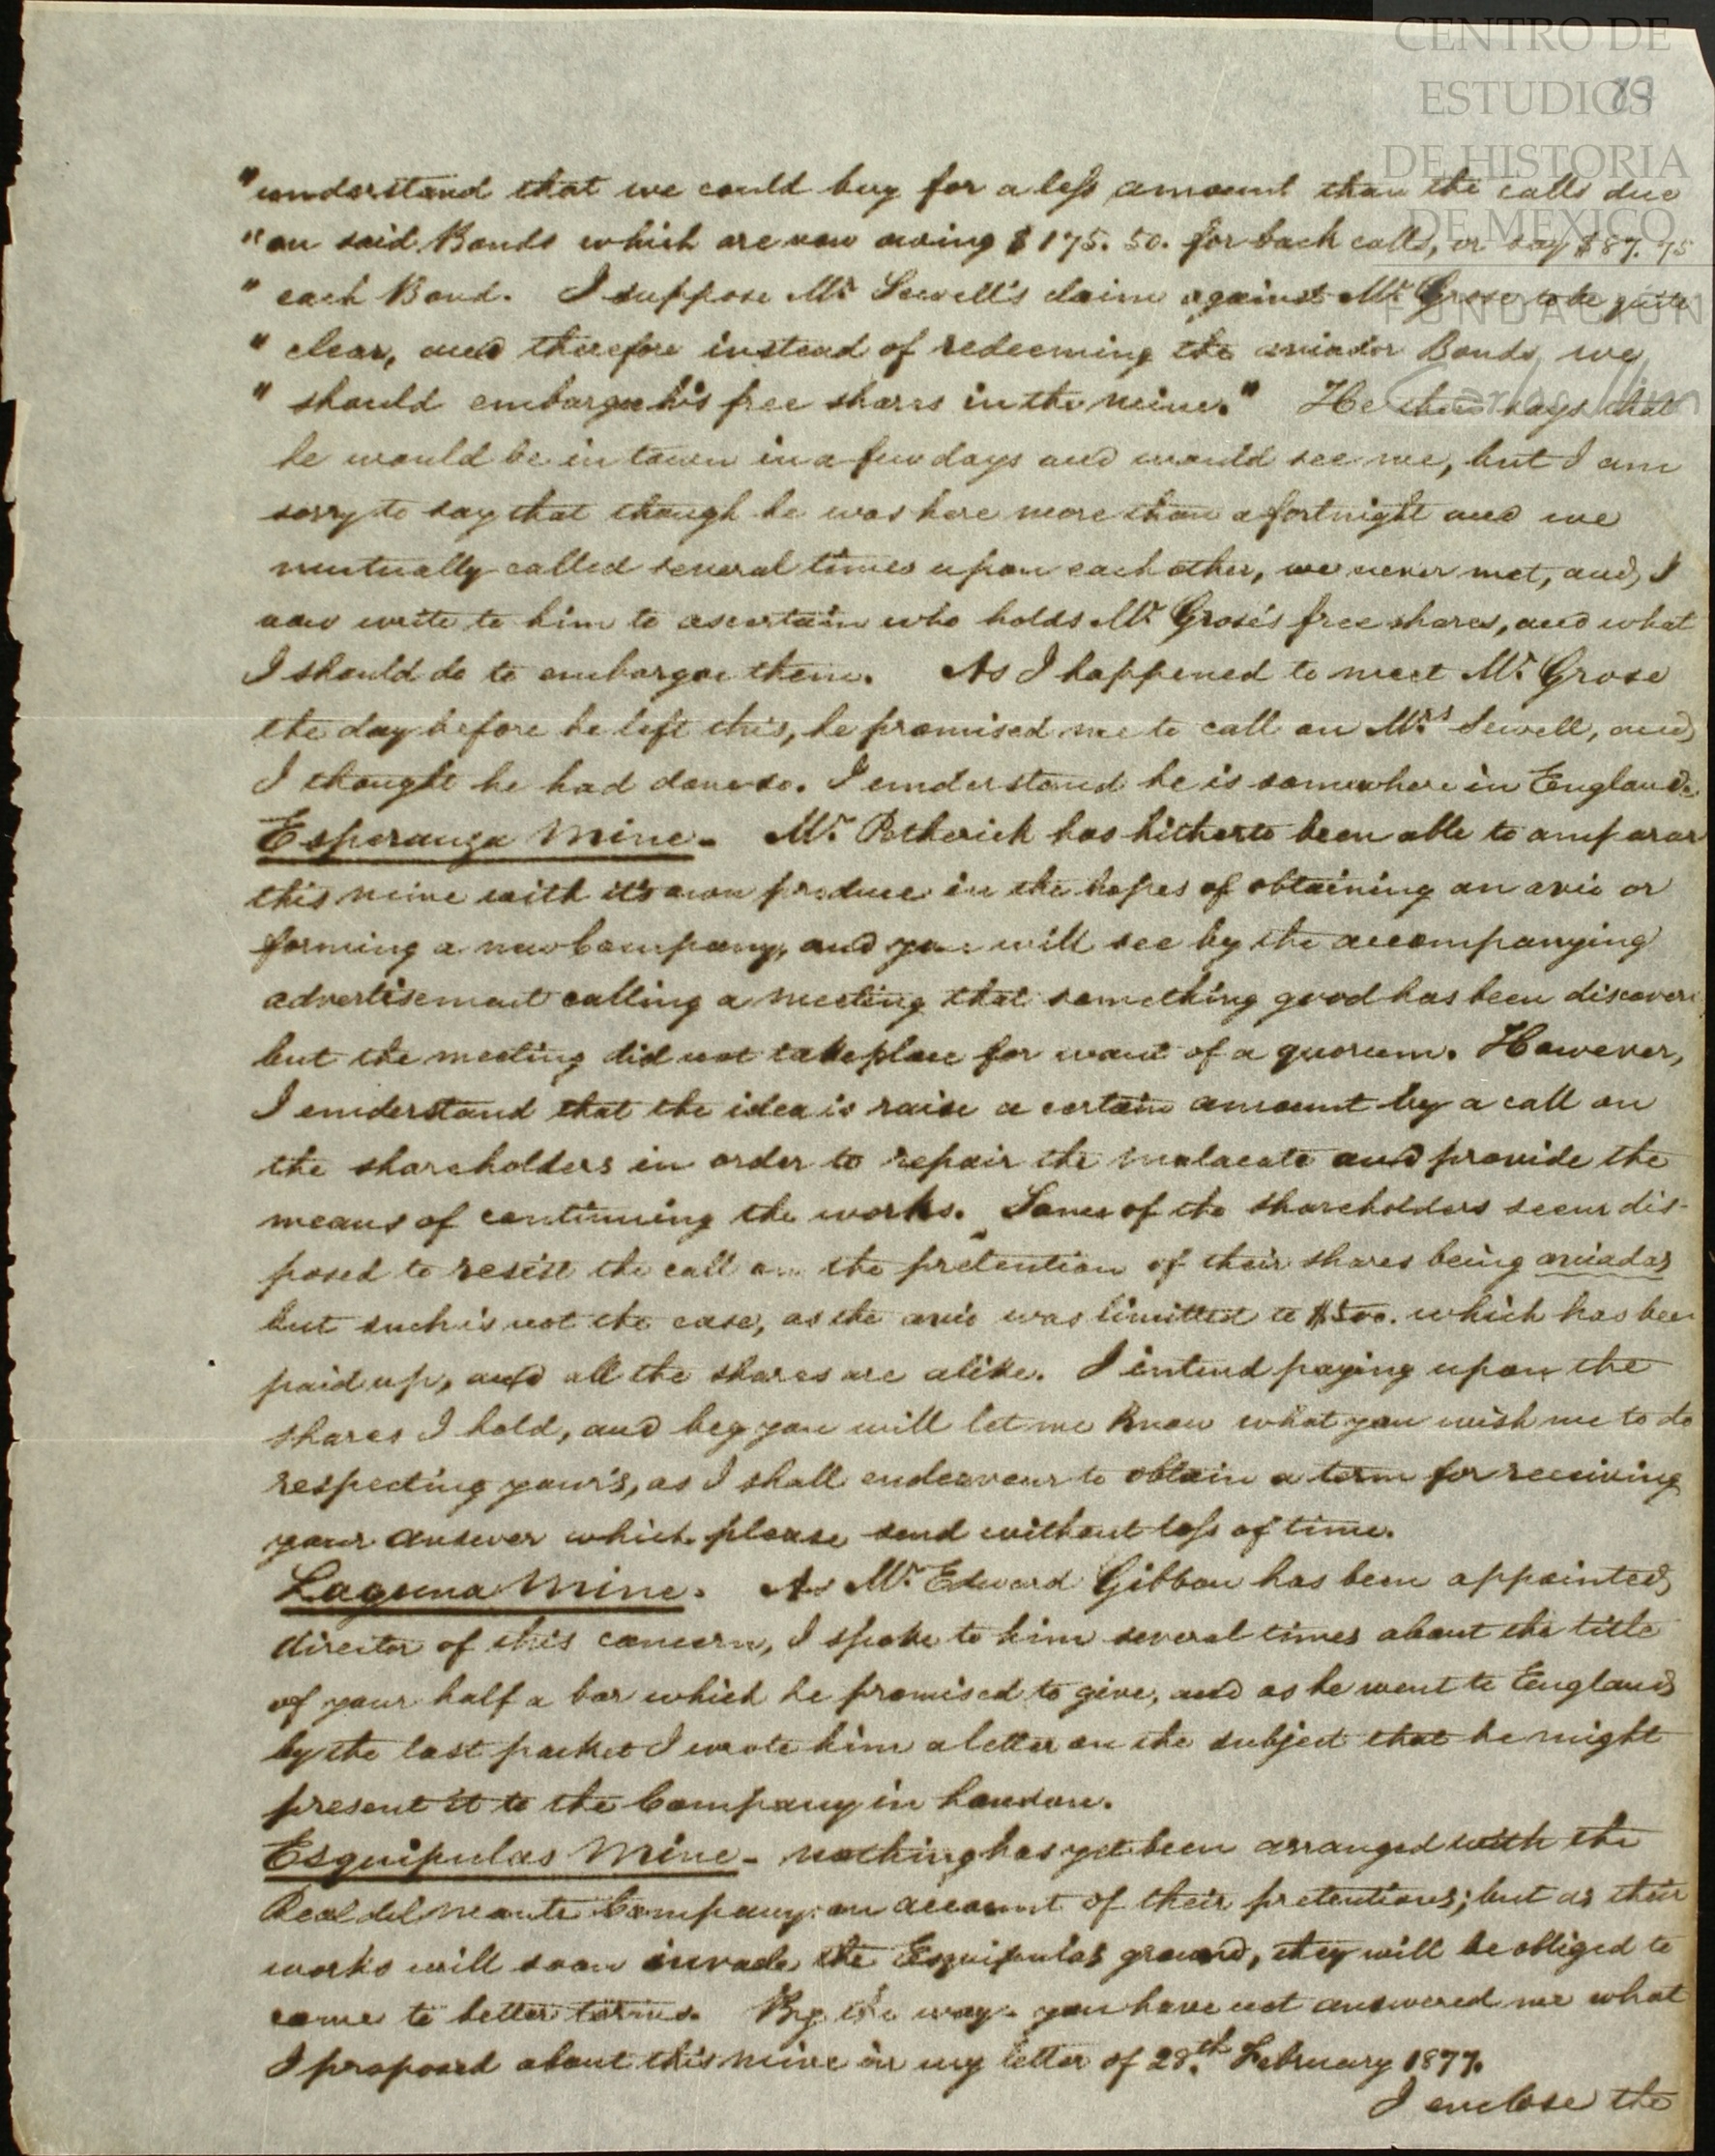 CENTRO DE
ESTUDIOS
DE HISTORIA
DE MÉXICO
FUNDACIÓN
Carlos Slim
"understand that we could buy for a less amount than the calls due
"on said Bonds which are now owing $175.50. for back calls, or say $87.75
" each Bond. I suppose Mr. Sewell's claim against Mr. Grose to be quite
" clear, and therefore instead of redeeming the aviador Bonds, we
" should embargoe his free shares in the mine." He then says that
he would be in town in a few days and would see me, but I am
sorry to say that though he was here more than a fortnight and we
mutually called several times upon each other, we never met, and I
now write to him to ascertain who holds Mr. Grose's free shares, and what
I should do to embargoe them. As I happened to meet Mr. Grose
the day before he left this, he promised me to call on Mrs. Sewell, and
I thought he had done so. I understand he is somewhere in England.
Esperanza Mine - Mr. Retherick has hitherto been able to amparar
this mine with it's own produce in the hopes of obtaining an avio or
forming a new Company, and you will see by the accompanying
advertisement calling a meeting that something good has been discovere
but the meeting did not take place for want of a quorum. However,
I understand that the idea is raise a certain amount by a call on
the shareholders in order to repair the malacate and provide the
means of continuing the works. Some of the shareholders seem dis-
posed to resist the call on the pretention of their shares being aviadas
but such is not the case, as the avio was limitted to $500. which has been
paid up, and all the shares are alike. I intend paying upon the
shares I hold, and beg you will let me know what you wish me to do
respecting your's, as I shall endeavour to obtain a term for receiving
your answer which please send without loss of time.
Laguna Mine. As Mr. Edward Gibbon has been appointed
director of this concern, I spoke to him several times about the title
of your half a bar which he promised to give, and as he went to England
by the last packet I wrote him a letter on the subject that he might
present it to the Company in London.
Esquipulas Mine - nothing has yet been arranged with the
Real del Monte Company on account of their pretentions; but as their
works will soon invade the Esquipulas ground, they will be obliged to
come to better terms. By the way, you have not answered me what
I proposed about this mine in my letter of 28.th February 1877.
I enclose the